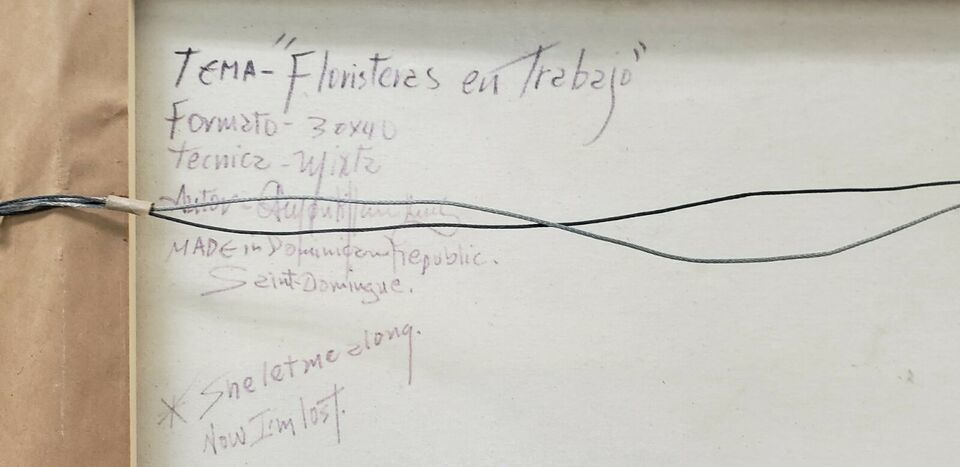 TEMA-"Floristeras en Trabajo"
Formato-30x40
Tecnica-Mixta
Autor-
MADE in Dominican republic.
Saint-Domingue.
* She let me along.
Now I'm lost.